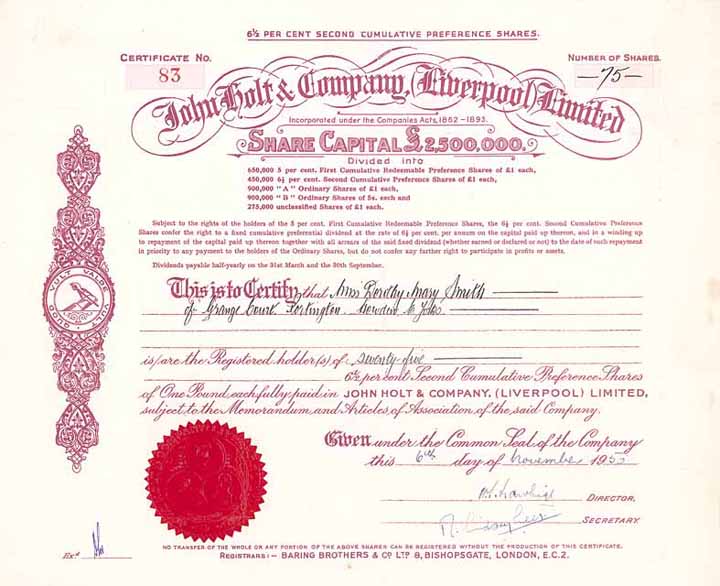 6½ PER CENT SECOND CUMULATIVE PREFERENCE SHARES.
CERTIFICATE No.
83
NUMBER OF SHARES.
—75—
John Holt & Company, (Liverpool) Limited
Incorporated under the Companies Acts, 1862–1893.
SHARE CAPITAL £2,500,000.
Divided into
650,000 5 per cent. First Cumulative Redeemable Preference Shares of £1 each,
450,000 6½ per cent. Second Cumulative Preference Shares of £1 each,
900,000 "A" Ordinary Shares of £1 each,
900,000 "B" Ordinary Shares of 5s. each and
275,000 unclassified Shares of £1 each.
Subject to the rights of the holders of the 5 per cent. First Cumulative Redeemable Preference Shares, the 6½ per cent. Second Cumulative Preference
Shares confer the right to a fixed cumulative preferential dividend at the rate of 6½ per cent. per annum on the capital paid up thereon, and in a winding up
to repayment of the capital paid up thereon together with all arrears of the said fixed dividend (whether earned or declared or not) to the date of such repayment
in priority to any payment to the holders of the Ordinary Shares, but do not confer any further right to participate in profits or assets.
Dividends payable half-yearly on the 31st March and the 30th September.
This is to Certify that Miss Dorothy Mary Smith
of Grange Court. Portington. Howden E. Yorks.
is/are the Registered holder(s) of seventy five
6½ per cent Second Cumulative Preference Shares
of One Pound each, fully paid in JOHN HOLT & COMPANY. (LIVERPOOL) LIMITED,
subject to the Memorandum and Articles of Association of the said Company.
QUOD VULT VALDE VULT
Given under the Common Seal of the Company
this 6th day of November 195
DIRECTOR.
SECRETARY.
Exd
NO TRANSFER OF THE WHOLE OR ANY PORTION OF THE ABOVE SHARES CAN BE REGISTERED WITHOUT THE PRODUCTION OF THIS CERTIFICATE.
REGISTRARS:- BARING BROTHERS & Co LTD 8, BISHOPSGATE, LONDON, E.C.2.